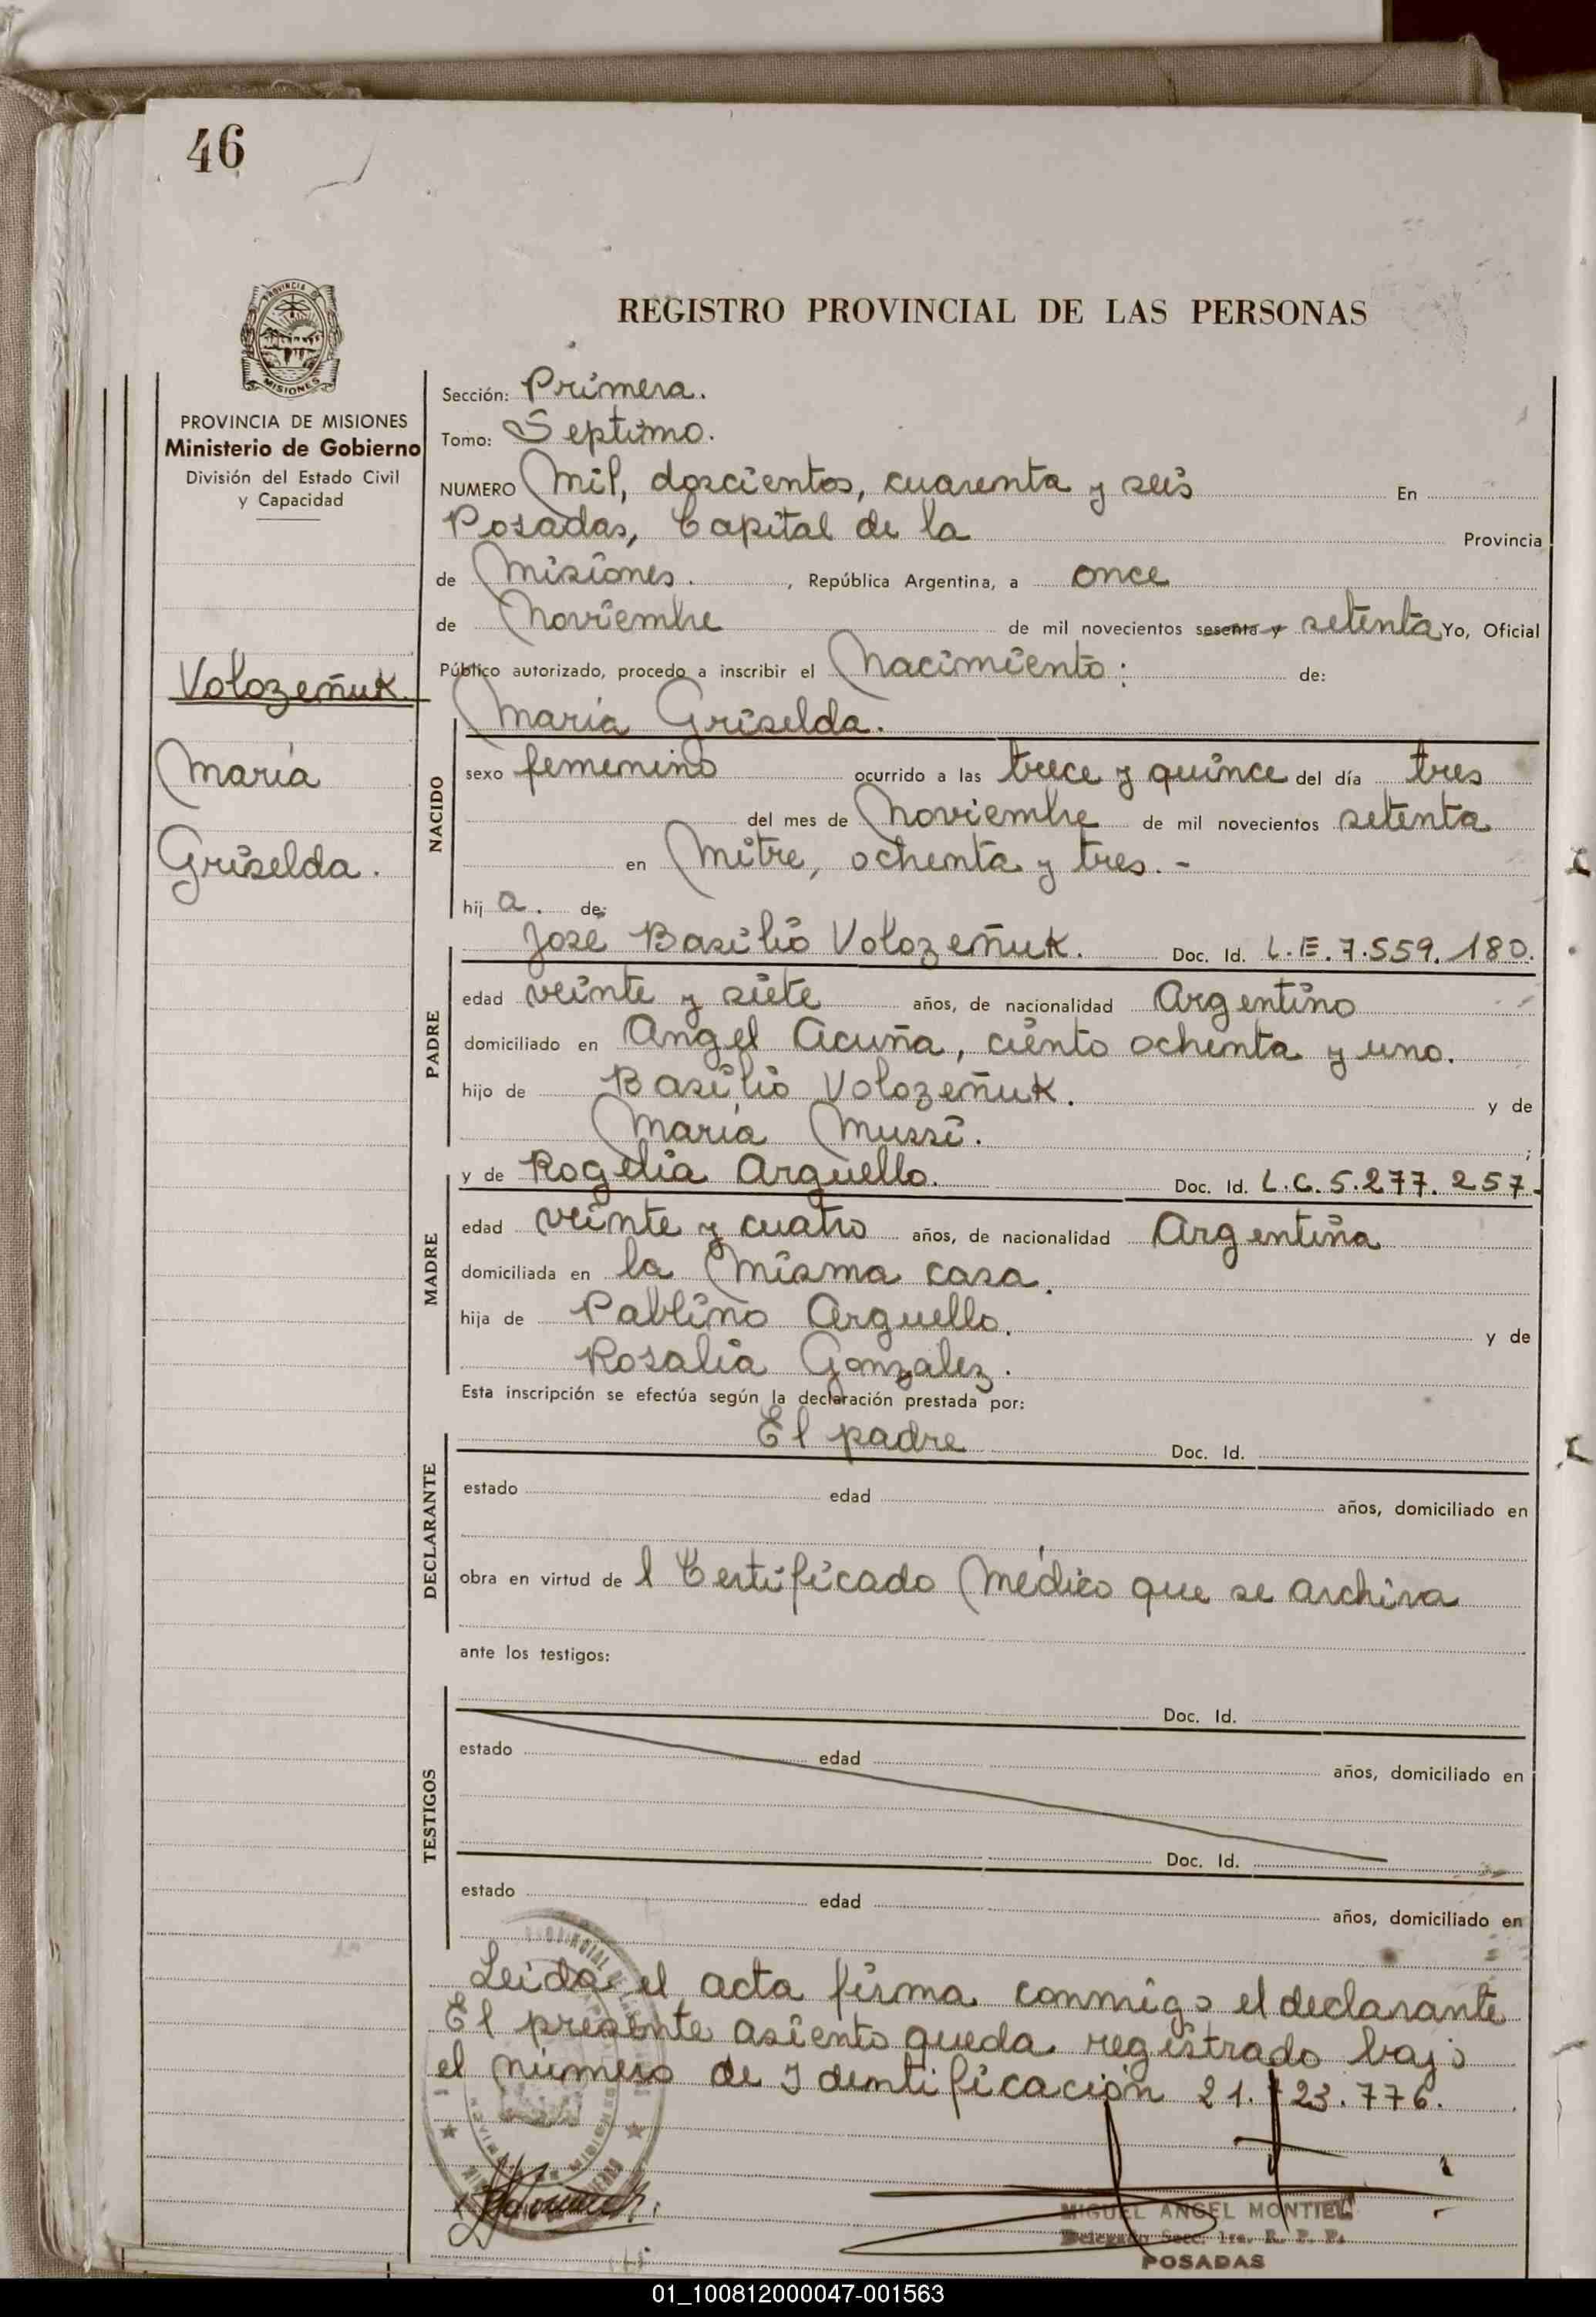 46
PROVINCIA DE
MISIONES
REGISTRO PROVINCIAL DE LAS PERSONAS
PROVINCIA DE MISIONES
Ministerio de Gobierno
División del Estado Civil
y Capacidad
Volozeñuk.
María
Griselda.
Sección: Primera.
Tomo: Septimo.
NUMERO Mil, doscientos, cuarenta y seis En
Posadas, Capital de la Provincia
de Misiones. , República Argentina, a once
de Noviembre de mil novecientos sesenta y setenta Yo, Oficial
Público autorizado, procedo a inscribir el Nacimiento: de:
María Griselda.
NACIDO
sexo femenino ocurrido a las trece y quince del día tres
del mes de Noviembre de mil novecientos setenta
en Mitre, ochenta y tres.-
hij a. de:
José Basilio Volozeñuk. Doc. Id. L.E. 7.559.180.
PADRE
edad veinte y siete años, de nacionalidad Argentino
domiciliado en Angel Acuña, ciento ochenta y uno.
hijo de Basilio Volozeñuk. y de
María Mussi. ;
y de Rogelia Arguello. Doc. Id. L.C. 5.277.257.
MADRE
edad veinte y cuatro años, de nacionalidad Argentina
domiciliada en la misma casa.
hija de Pablino Arguello. y de
Rosalia Gonzalez.
Esta inscripción se efectúa según la declaración prestada por:
El padre Doc. Id.
DECLARANTE
estado edad años, domiciliado en
obra en virtud de l Certificado Médico que se archiva
ante los testigos:
TESTIGOS
Doc. Id.
estado edad años, domiciliado en
Doc. Id.
estado edad años, domiciliado en
Leida el acta firma conmigo el declarante
El presente asiento queda registrado bajo
el número de Identificación 21.723.776.
MIGUEL ANGEL MONTIEL
Delegado Secc. 1ra. R. P. P.
POSADAS
01_100812000047-001563